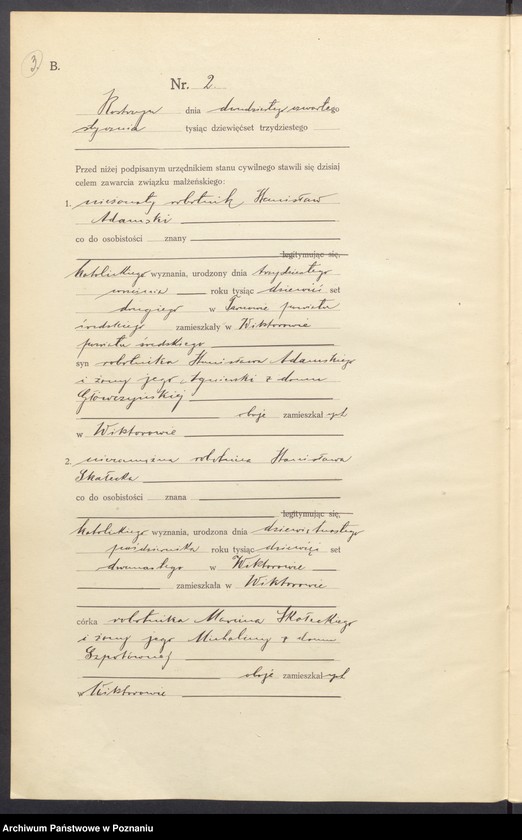 3.
B.
Nr. 2.
Kostrzyn dnia dwudziestego czwartego
stycznia tysiąc dziewięćset trzydziestego
Przed niżej podpisanym urzędnikiem stanu cywilnego stawili się dzisiaj
celem zawarcia związku małżeńskiego:
1. nieżonaty robotnik Stanisław
Adamski
co do osobistości znany
legitymując się,
katolickiego wyznania, urodzony dnia trzydziestego
września roku tysiąc dziewięć set
drugiego w powiatu
średzkiego zamieszkały w Wiktorowie
powiatu średzkiego
syn robotnika Stanisława Adamskiego
i żony jego Agnieszki z domu
Główczyńskiej
oboje zamieszkał
w Wiktorowie
2. niezamężna robotnica Stanisława
Skałecka
co do osobistości znana
legitymując się,
katolickiego wyznania, urodzona dnia dziewiętnastego
października roku tysiąc dziewięć set
dwunastego w Wiktorowie
zamieszkała w Wiktorowie
córka robotnika Marcina Skałeckiego
i żony jego Michaliny z domu
oboje zamieszkał
w Wiktorowie
Archiwum Państwowe w Poznaniu